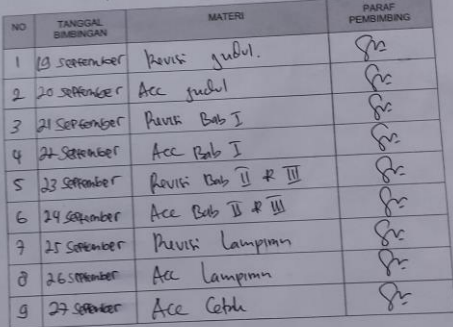 NO TANGGAL BIMBINGAN MATERI PARAF PEMBIMBING
1 19 September Revisi judul.
2 20 September Acc judul
3 21 September Revisi Bab I
4 22 September Acc Bab I
5 23 September Revisi Bab II & III
6 24 September Acc Bab II & III
7 25 September Revisi Lampiran
8 26 September Acc Lampiran
9 27 September Acc Cetak